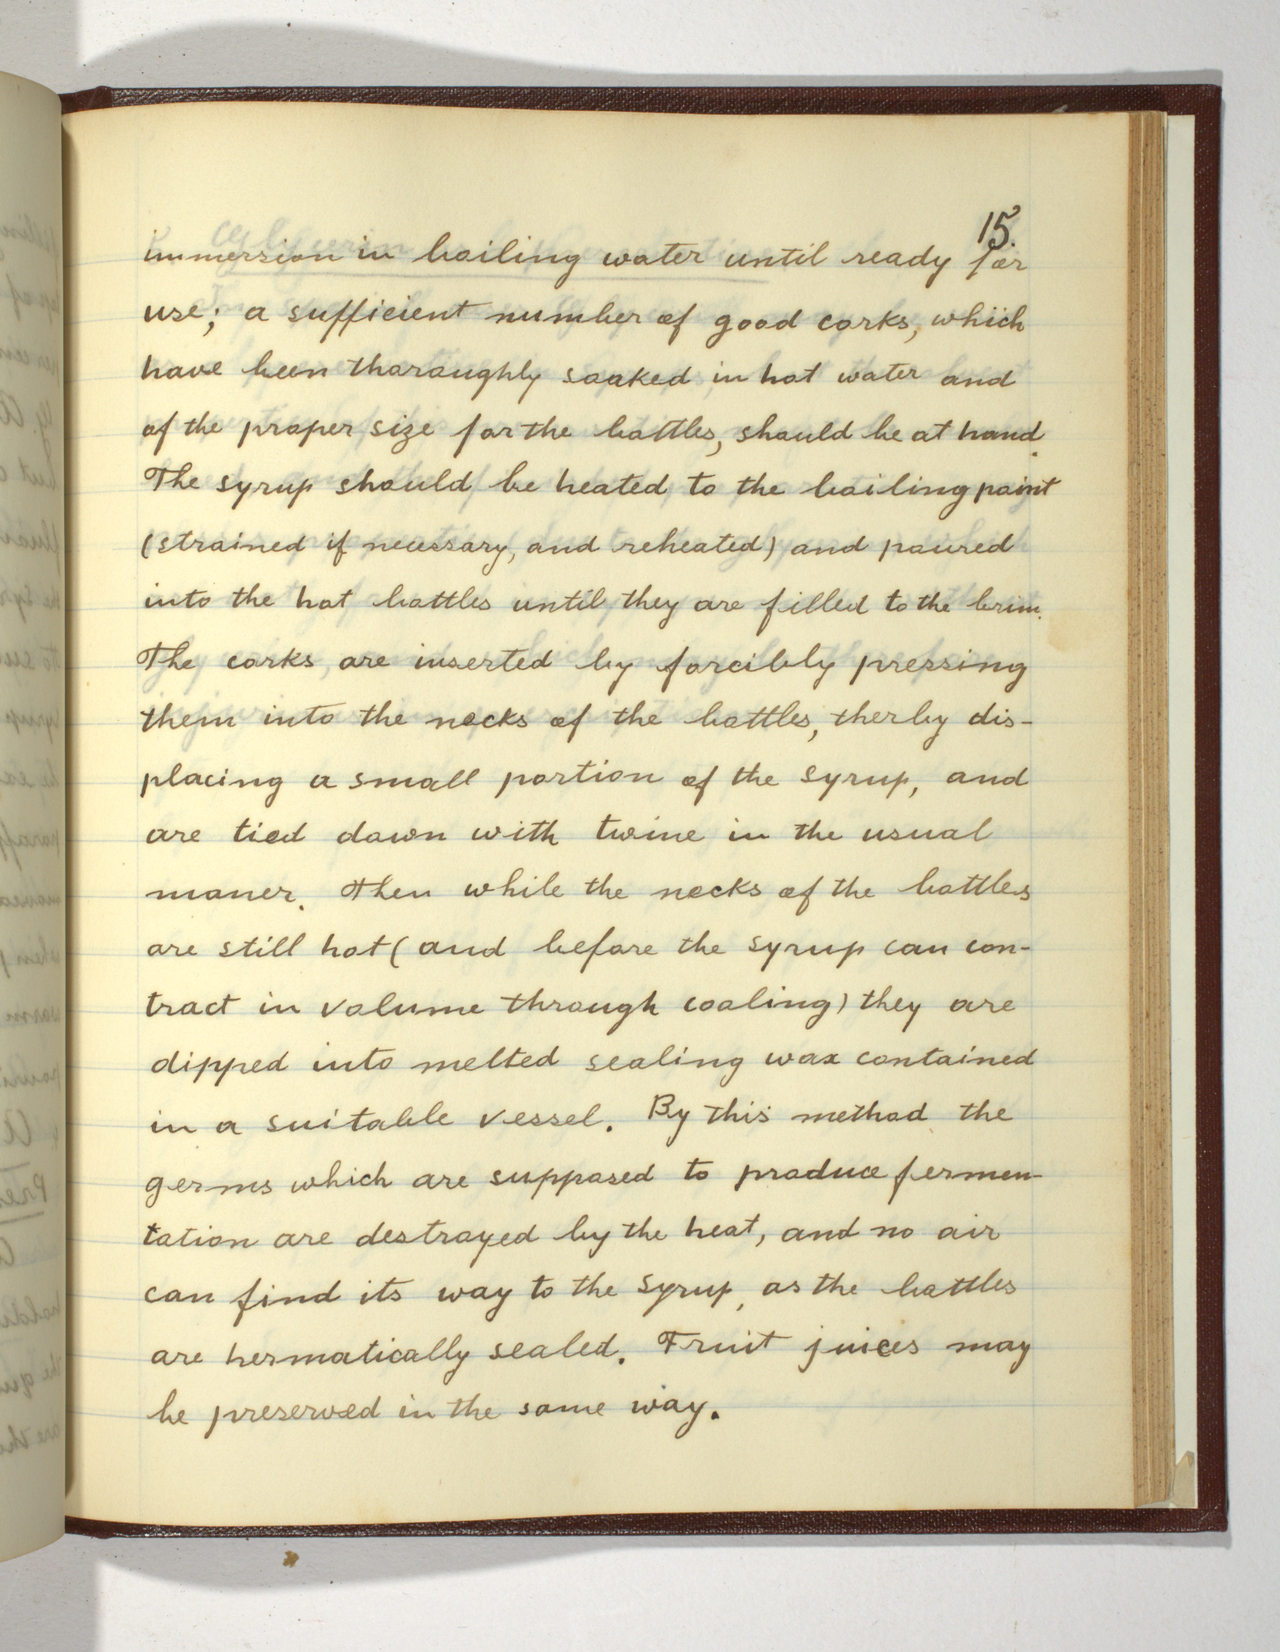 15.
immersion in boiling water until ready for
use; a sufficient number of good corks, which
have been thoroughly soaked in hot water and
of the proper size for the bottles, should be at hand.
The syrup should be heated to the boiling point
(strained if necessary, and reheated) and poured
into the hot bottles until they are filled to the brim.
The corks are inserted by forcibly pressing
them into the necks of the bottles, therby dis-
placing a small portion of the syrup, and
are tied down with twine in the usual
maner. Then while the necks of the bottles
are still hot (and before the syrup can con-
tract in volume through cooling) they are
dipped into melted sealing wax contained
in a suitable vessel. By this method the
germs which are supposed to produce fermen-
tation are destroyed by the heat, and no air
can find its way to the syrup, as the bottles
are hermatically sealed. Fruit juices may
be preserved in the same way.